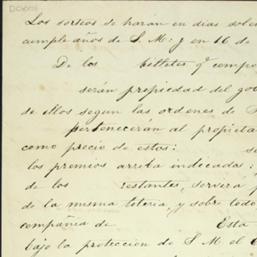 Los sorteos se harán en dias solem
cumple años de S. M: y en 16 de
De los billetes q.e compo
serán propiedad del gob
de ellos segun las ordenes de
perteneceran al propieta
como precio de estos: se
los premios arriba indicados:
de los restantes, servira p
de la misma loteria, y sobre todo
compañia de Esta
bajo la proteccion de S M el E